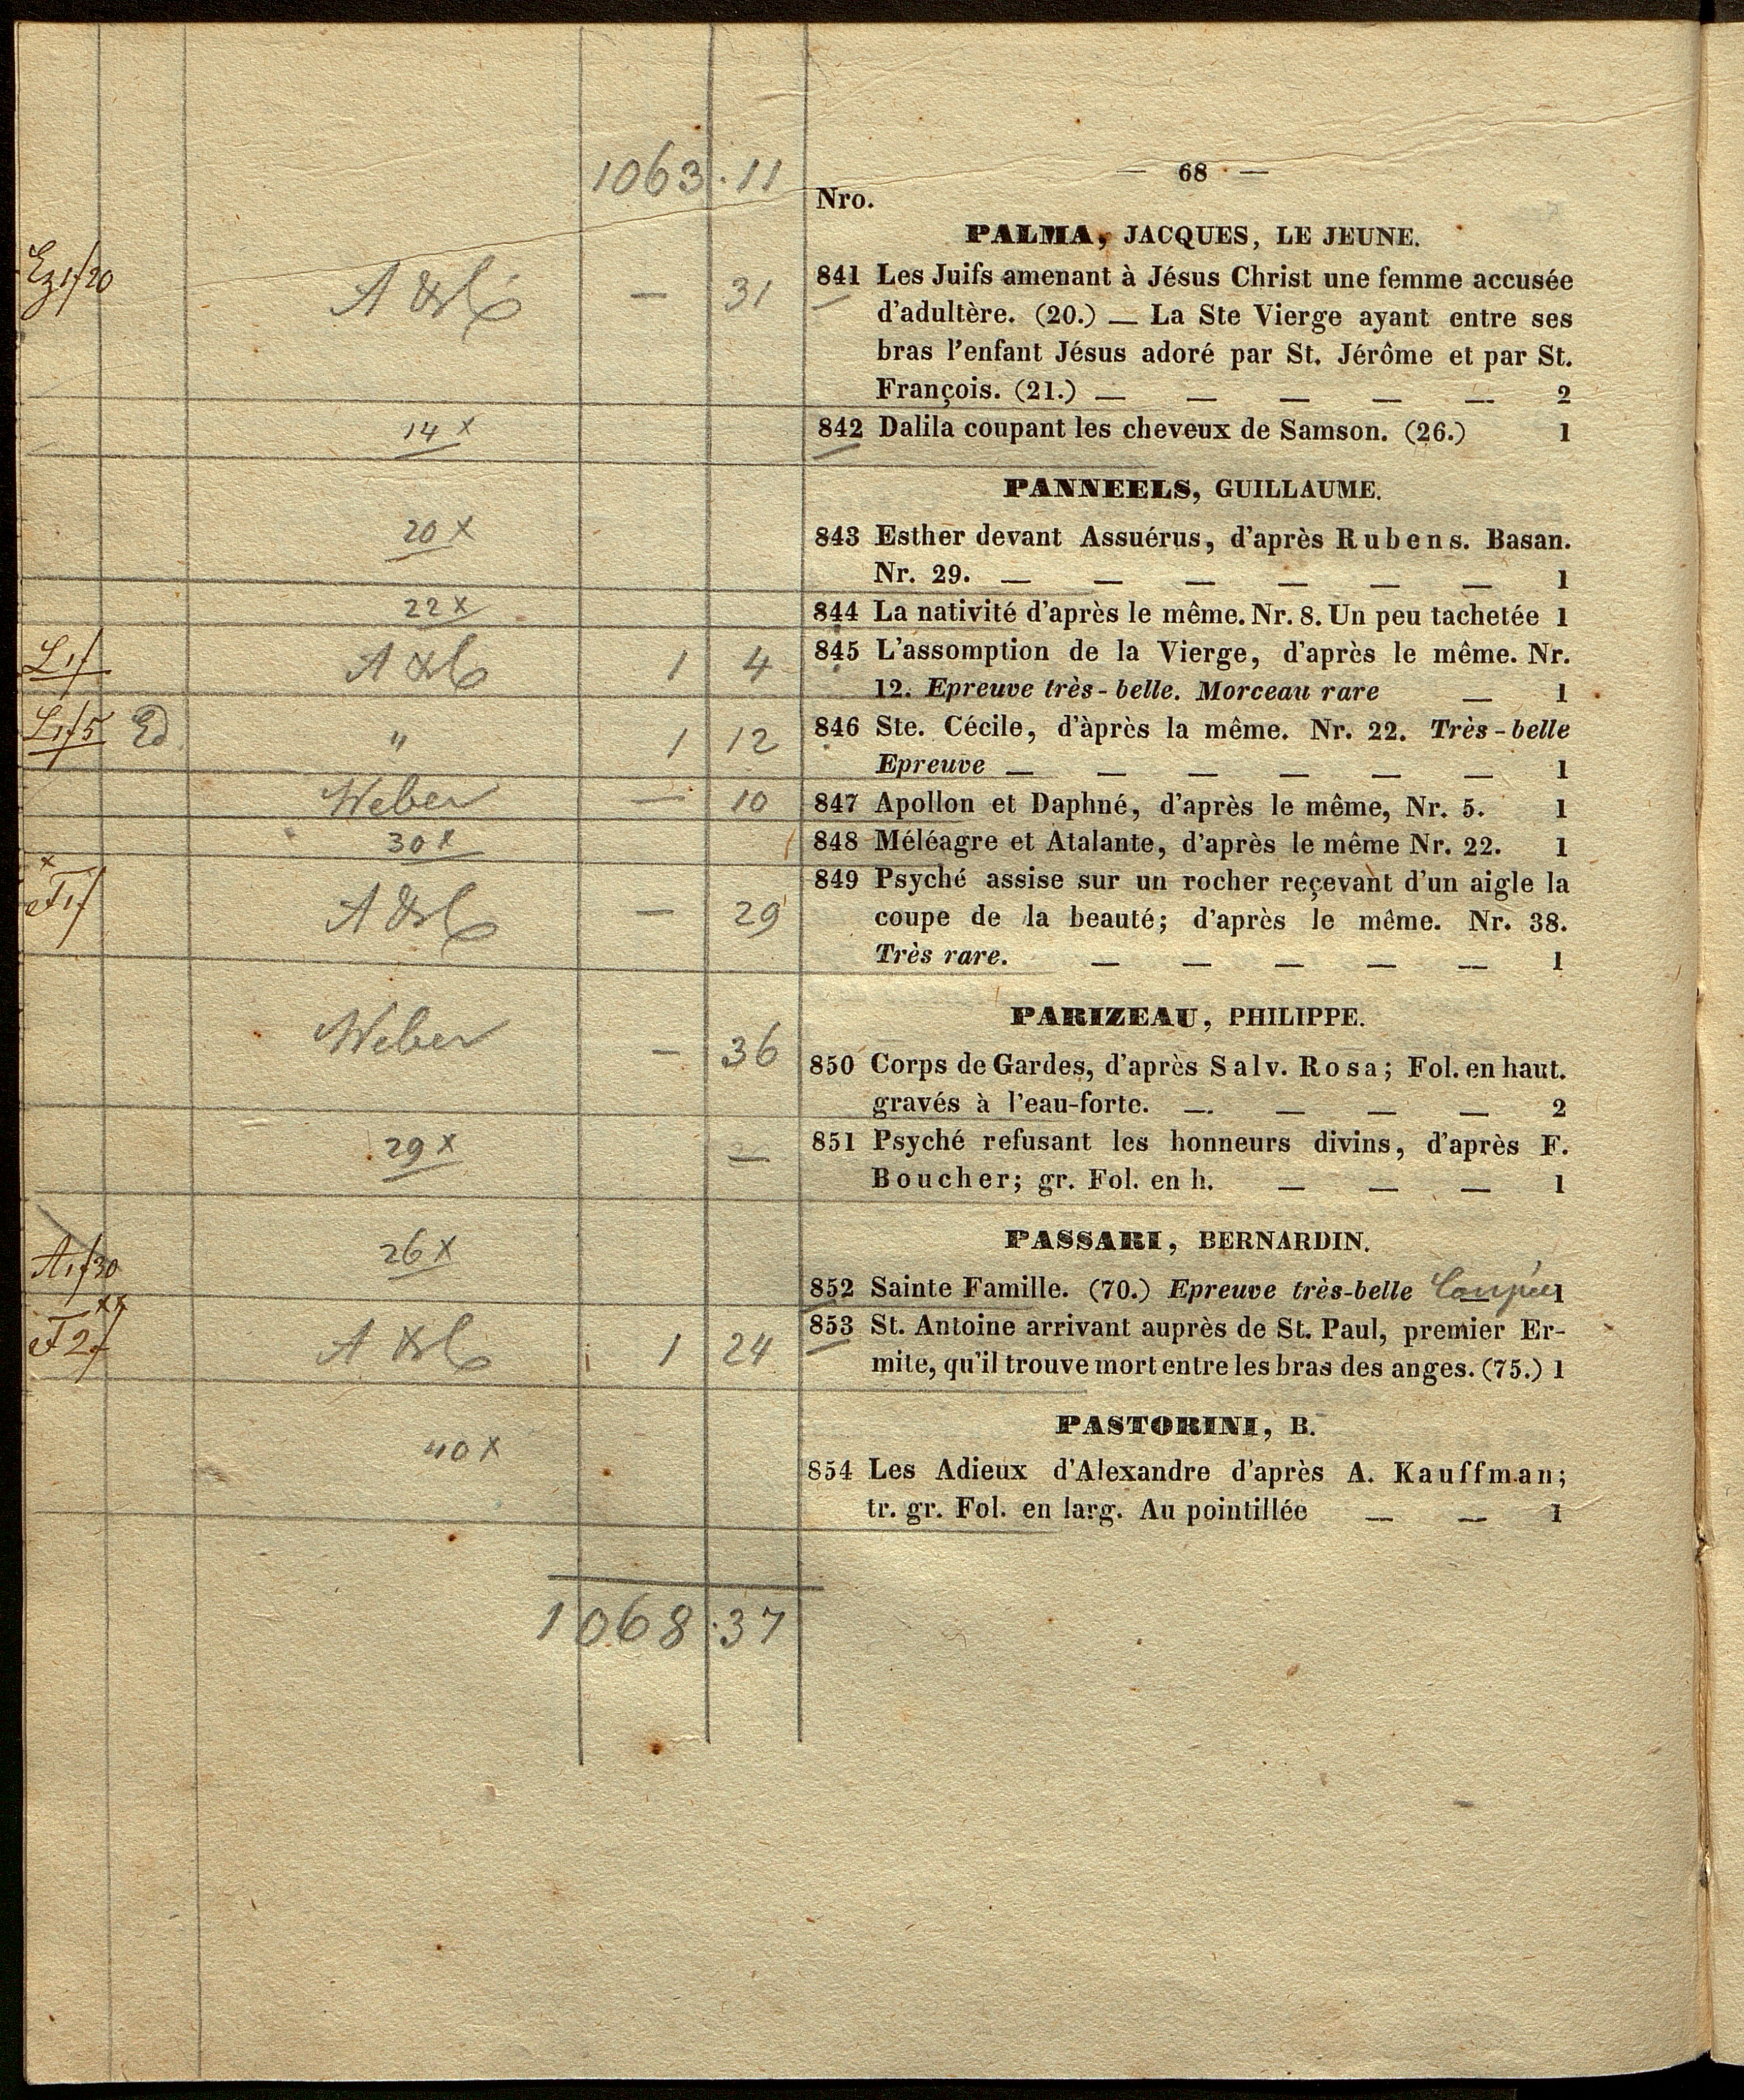 1063 . 11
— 68 · —
Nro.
PALMA, JACQUES, LE JEUNE.
— 31
841 Les Juifs amenant à Jésus Christ une femme accusée
d'adultère. (20.) — La Ste Vierge ayant entre ses
bras l'enfant Jésus adoré par St. Jérôme et par St.
François. (21.) — — — — — 2
14 x
842 Dalila coupant les cheveux de Samson. (26.) 1
PANNEELS, GUILLAUME.
20 x
843 Esther devant Assuérus, d'après Rubens. Basan.
Nr. 29. — — — — — — 1
22 x
844 La nativité d'après le même. Nr. 8. Un peu tachetée 1
1 4
845 L'assomption de la Vierge, d'après le même. Nr.
12. Epreuve très-belle. Morceau rare — 1
Ed " 1 12
846 Ste. Cécile, d'àprès la même. Nr. 22. Très-belle
Epreuve — — — — — — 1
Weber — 10
847 Apollon et Daphné, d'après le même, Nr. 5. 1
30 x
848 Méléagre et Atalante, d'après le même Nr. 22. 1
— 29
849 Psyché assise sur un rocher reçevant d'un aigle la
coupe de la beauté; d'après le même. Nr. 38.
Très rare. — — — — — 1
PARIZEAU, PHILIPPE.
Weber — 36
850 Corps de Gardes, d'après Salv. Rosa; Fol. en haut.
gravés à l'eau-forte. — — — — 2
29 x —
851 Psyché refusant les honneurs divins, d'après F.
Boucher; gr. Fol. en h. — — — 1
PASSARI, BERNARDIN.
26 x
852 Sainte Famille. (70.) Epreuve très-belle Coupée 1
1 24
853 St. Antoine arrivant auprès de St. Paul, premier Er-
mite, qu'il trouve mort entre les bras des anges. (75.) 1
PASTORINI, B.
40 x
854 Les Adieux d'Alexandre d'après A. Kauffman;
tr. gr. Fol. en larg. Au pointillée — — 1
1068 . 37